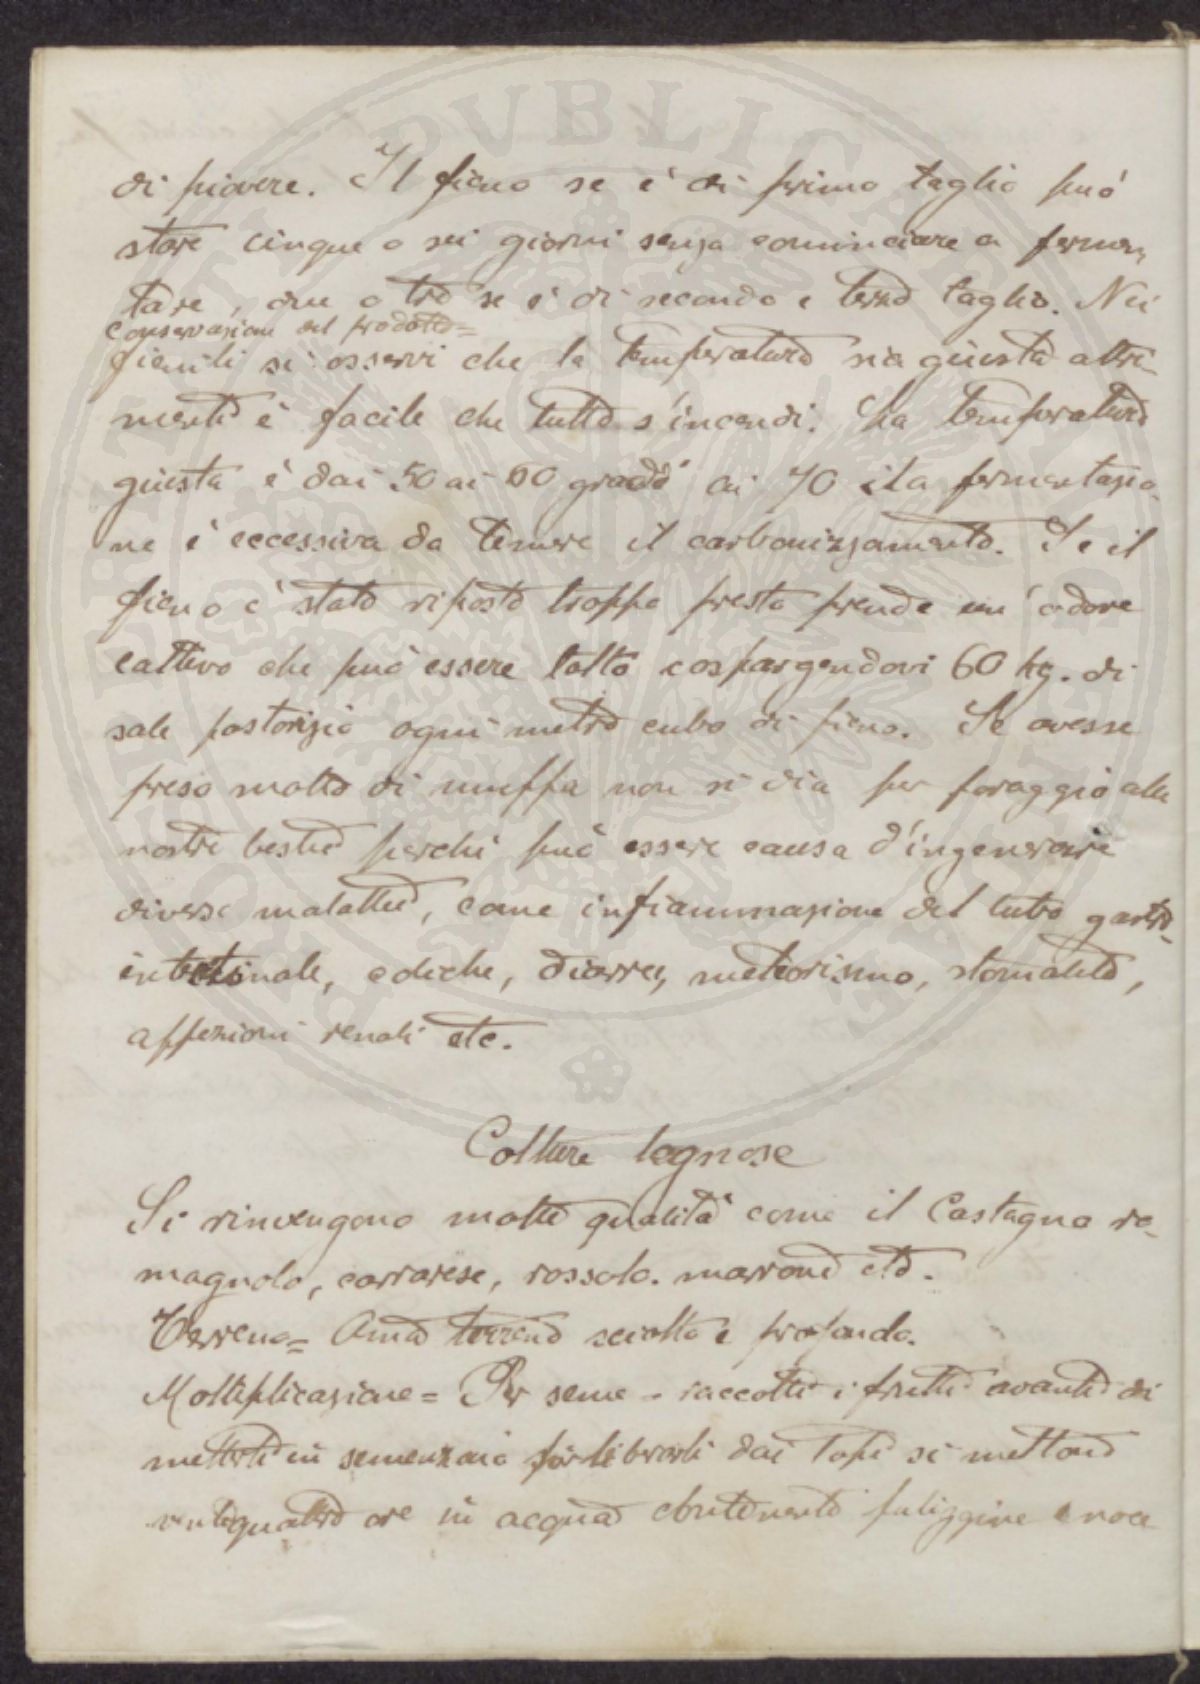 di piovere. Il fieno se è di primo taglio può
stare cinque o sei giorni senza cominciare a fermen-
tare, due o tre se è di secondo e terzo taglio. Nei
Conservazione del prodotto=
fienili si osservi che la temperatura sia giusta altri-
menti è facile che tutto s'incendi. La temperatura
giusta è dai 50 ai 60 gradi ai 70 la fermentazio-
ne è eccessiva da temere il carbonizzamento. Se il
fieno è stato riposto troppo presto prende un'odore
cattivo che può essere tolto cospargendovi 60 kg. di
sale pastorizio ogni metro cubo di fieno. Se avesse
preso molto di muffa non si dia per foraggio alle
nostre bestie perchè può essere causa d'ingenerare
diverse malattie, come infiammazione del tubo gastro-
intestinale, coliche, diarree, meteorismo, stomatite,
affezioni renali etc.
Colture legnose
Si rinvengono molte qualità come il Castagno ro-
magnolo, carrarese, rossolo. marrone etc.
Terreno= Ama terreno sciolto e profondo.
Moltiplicazione= Per seme - raccolti i frutti avanti di
metterli in semenzaio per liberarli dai topi si mettono
ventiquattro ore in acqua contenente fuliggine e noce